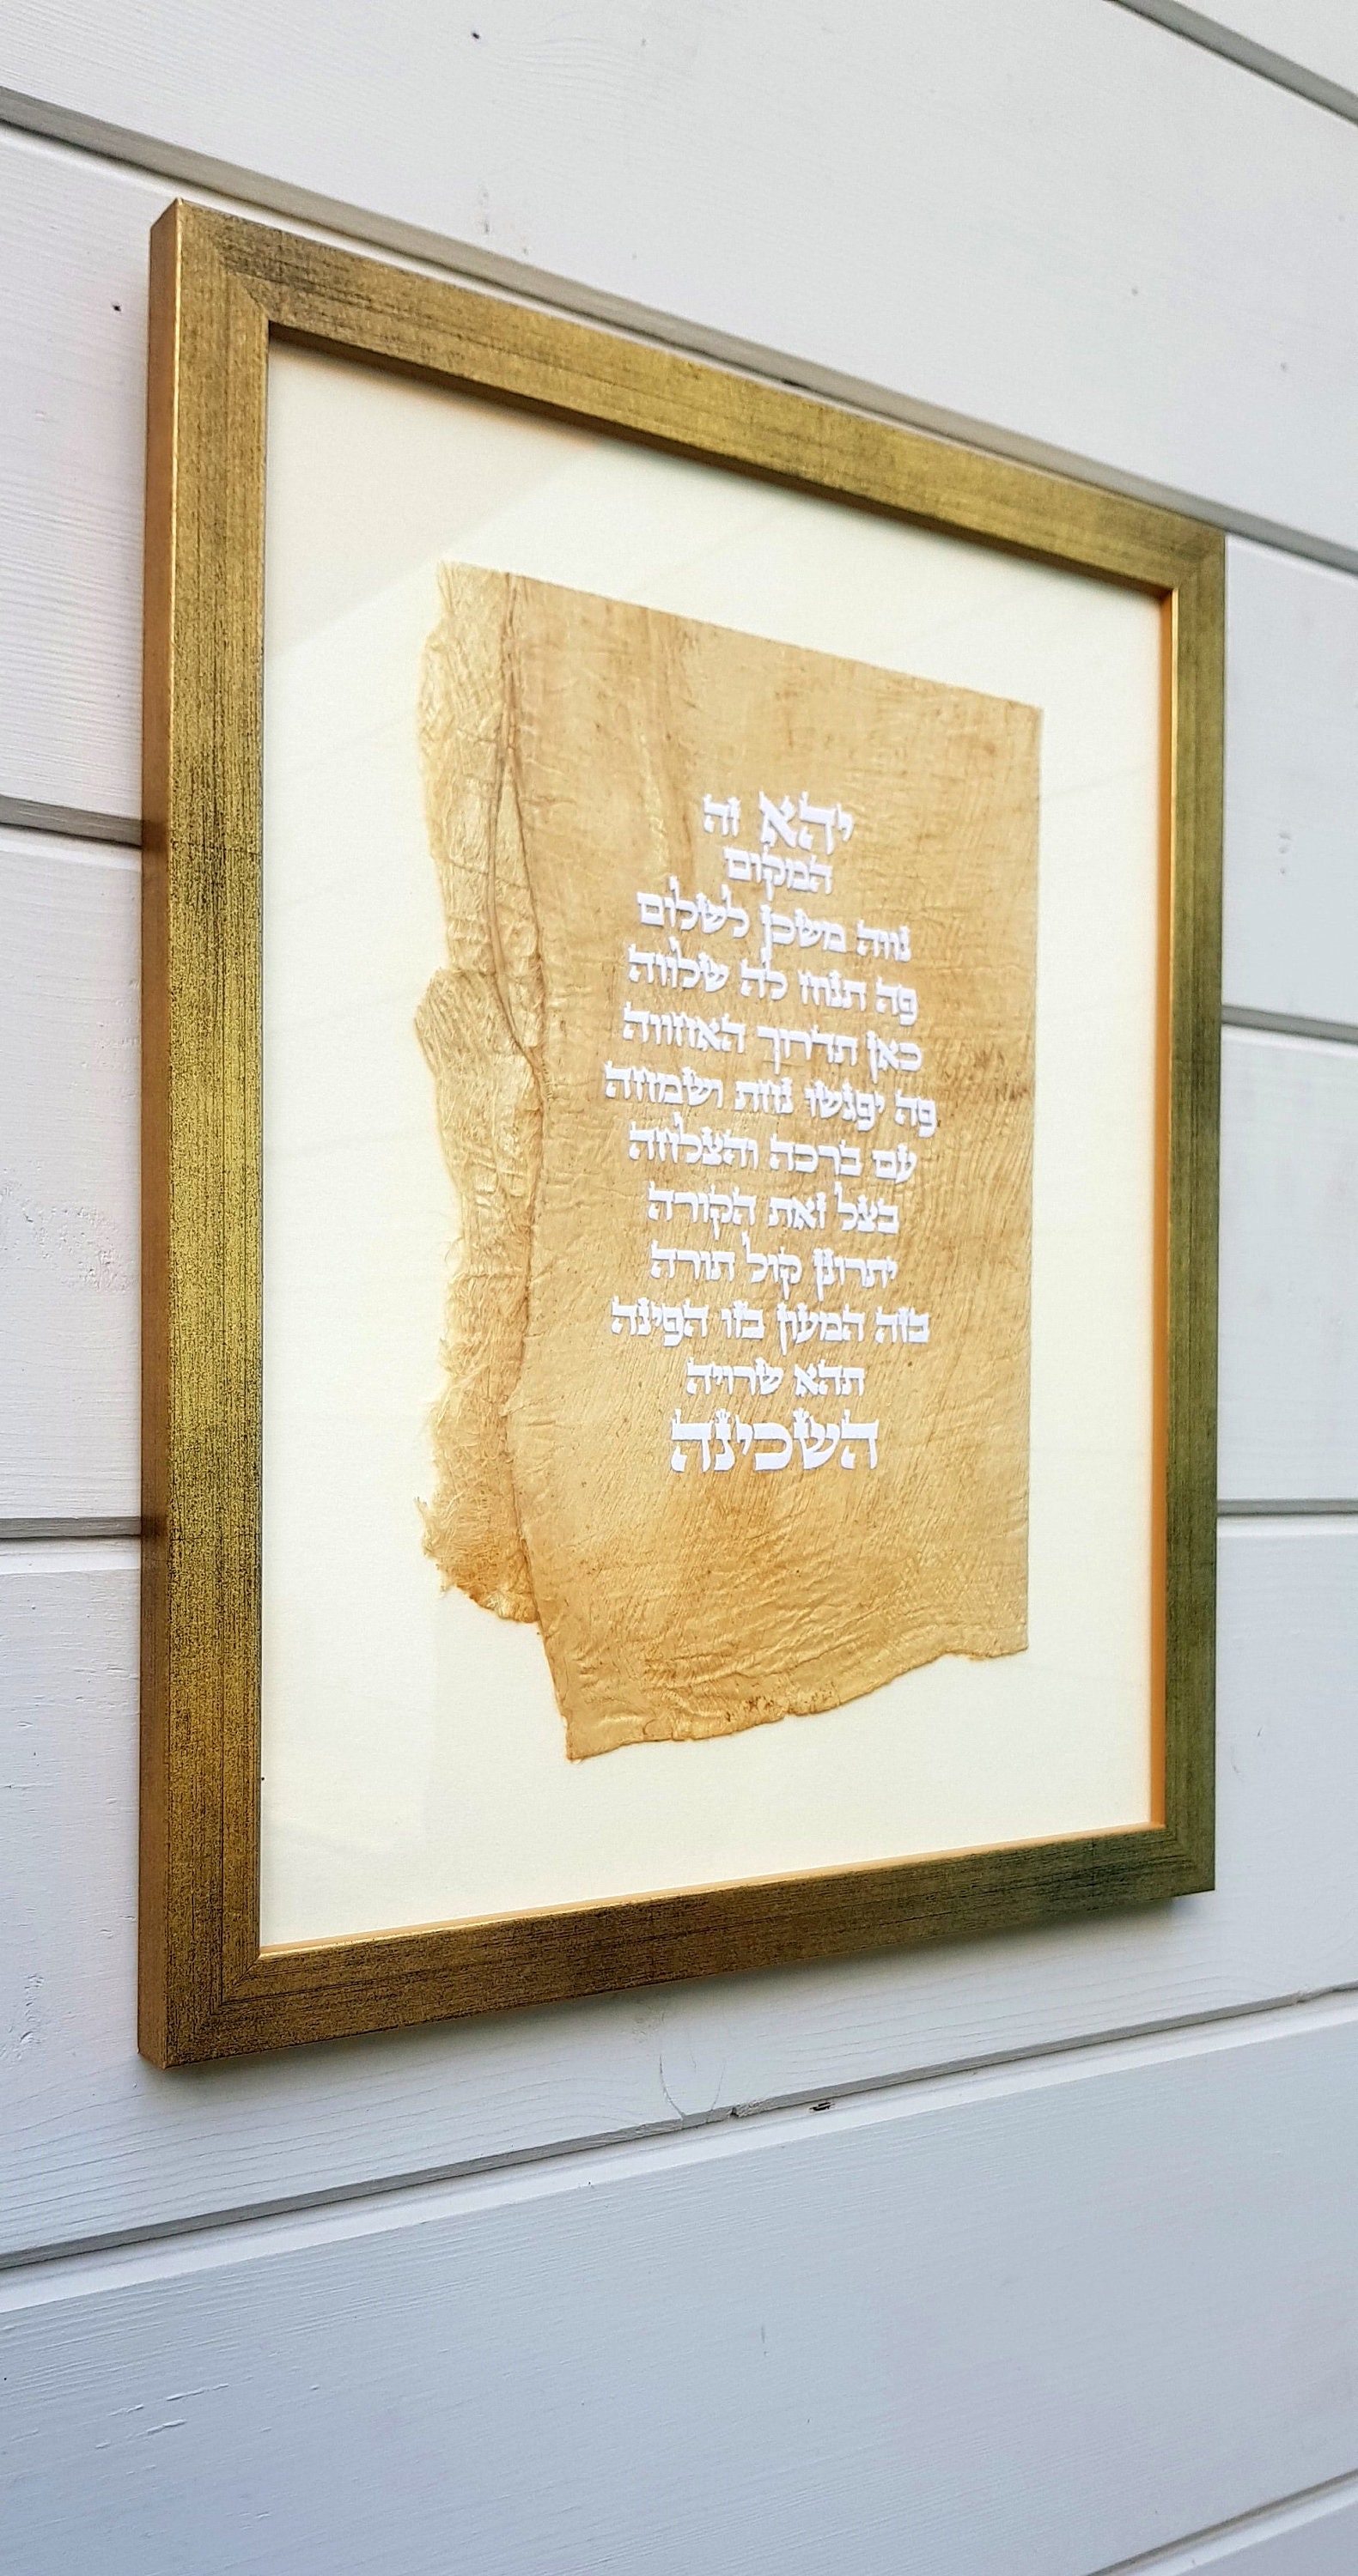 יהא זה
המקום
נווה משכן לשלום
פה תנחו לה שלווה
כאן תדרוך האחווה
פה יפגשו נחת ושמחה
עם ברכה והצלחה
בצל זאת הקורה
יתרונן קול תורה
בזה המעון בזו הפינה
תהא שרויה
השכינה